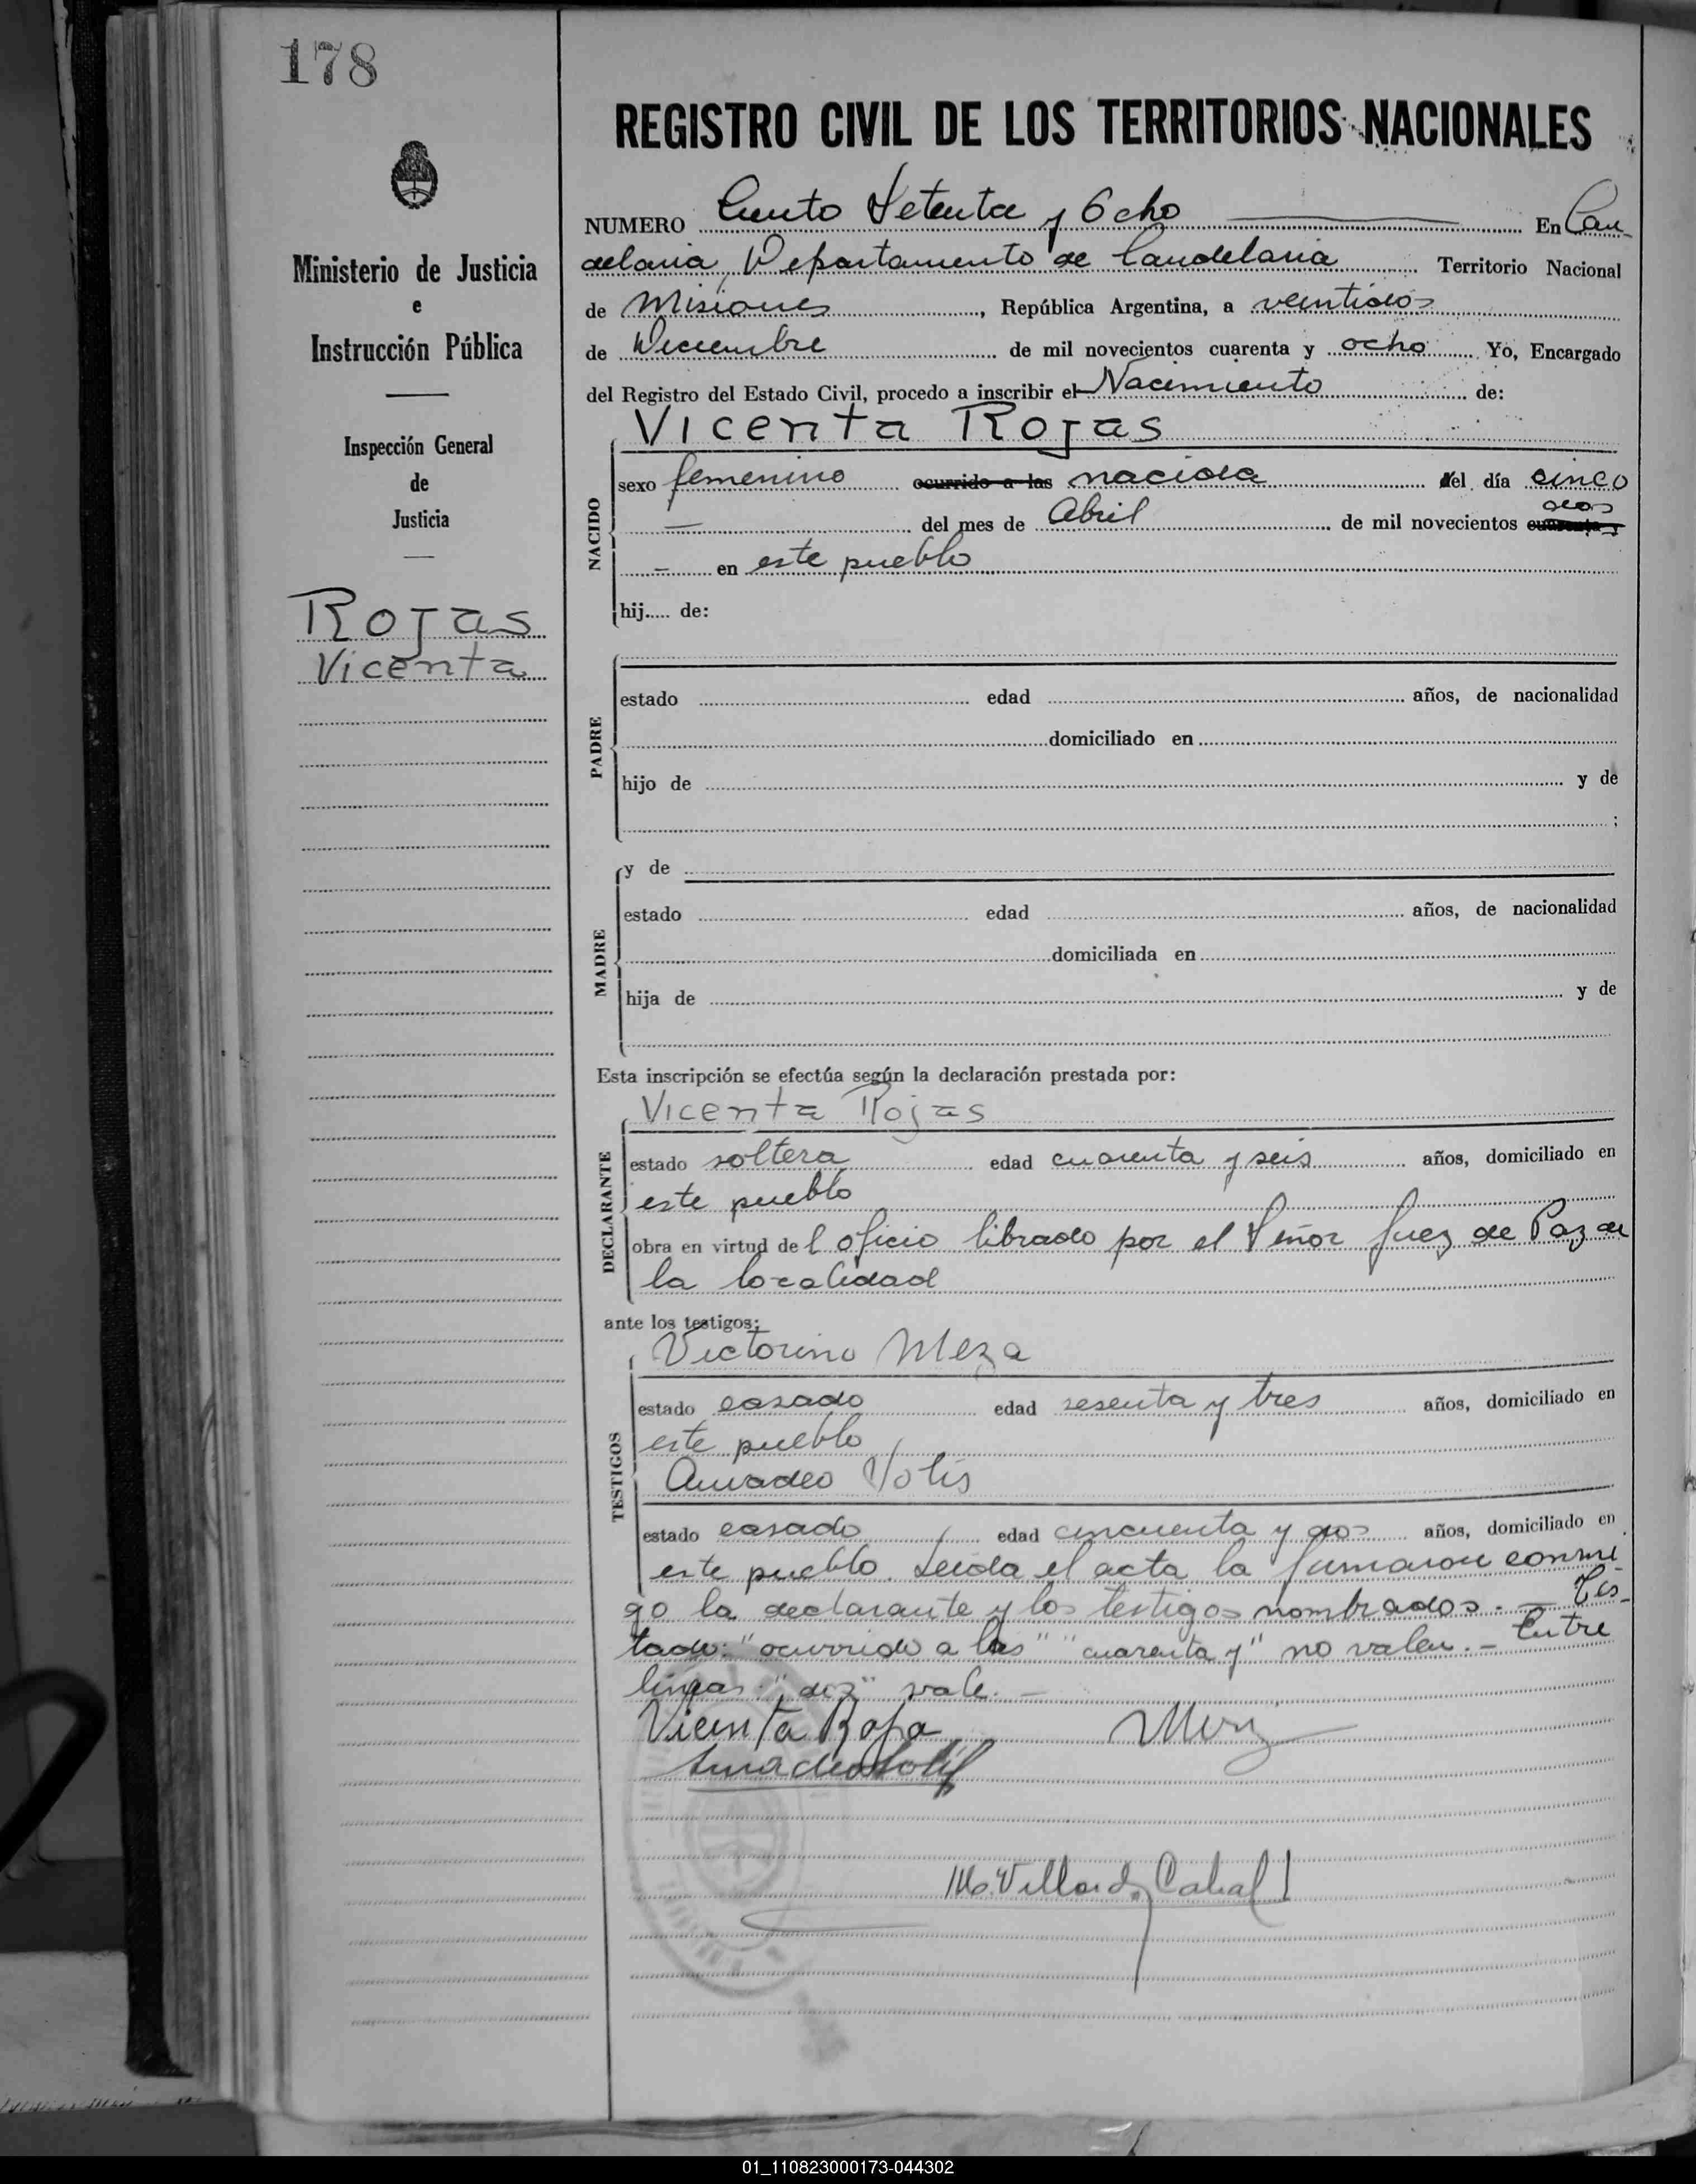 178
REGISTRO CIVIL DE LOS TERRITORIOS NACIONALES
Ministerio de Justicia
e
Instrucción Pública
Inspección General
de
Justicia
Rojas
Vicenta
NUMERO Ciento Setenta y Ocho En Can-
delaria, Departamento de Candelaria Territorio Nacional
de Misiones, República Argentina, a veintidós
de Diciembre de mil novecientos cuarenta y ocho Yo, Encargado
del Registro del Estado Civil, procedo a inscribir el Nacimiento de:
Vicenta Rojas
NACIDO
sexo femenino ocurrido a las nacida del día cinco
dos
— del mes de Abril de mil novecientos cuarenta y
— en este pueblo
hij..... de:
PADRE
estado edad años, de nacionalidad
domiciliado en
hijo de y de
;
MADRE
y de
estado edad años, de nacionalidad
domiciliada en
hija de y de
Esta inscripción se efectúa según la declaración prestada por:
DECLARANTE
Vicenta Rojas
estado soltera edad cuarenta y seis años, domiciliado en
este pueblo
obra en virtud del oficio librado por el Señor Juez de Paz de
la localidad
ante los testigos:
TESTIGOS
Victorino Meza
estado casado edad sesenta y tres años, domiciliado en
este pueblo
Amadeo Solis
estado casado edad cincuenta y dos años, domiciliado en
este pueblo. Leída el acta la firmaron conmi
go la declarante y los testigos nombrados. — Tes-
tado: "ocurrido a las" "cuarenta y" no valen. — Entre
lineas: "dos" vale. —
Vicenta Roja
Meza
Amadeo Solis
Cabal
01_110823000173-044302